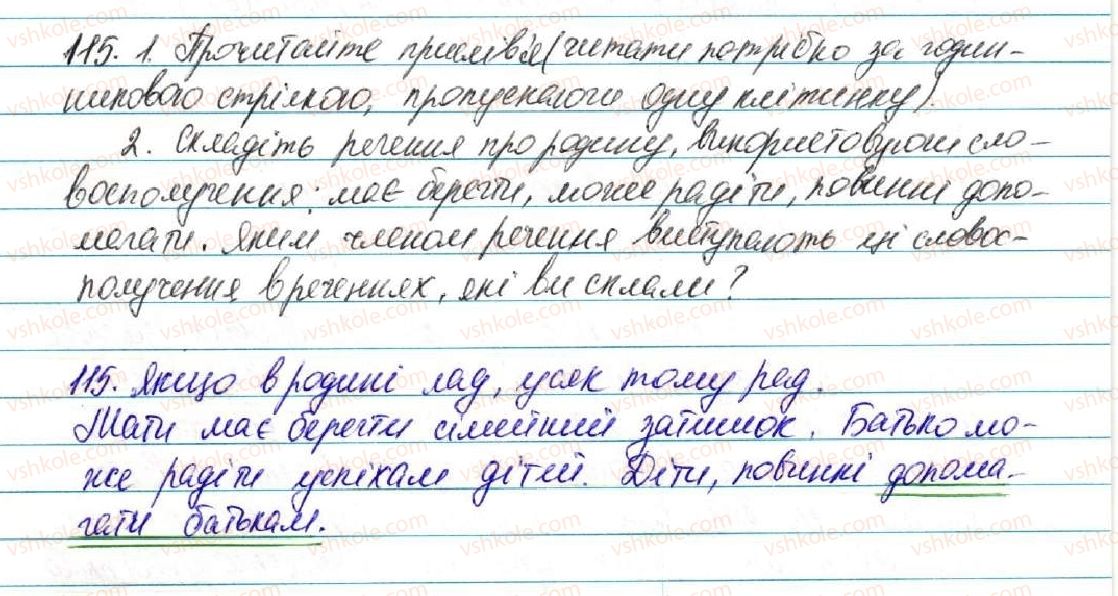 115. 1. Прочитайте прислів'я (читати потрібно за годин-
никовою стрілкою, пропускаючи одну клітинку).
2. Складіть речення про родину, використовуючи сло-
восполучення: має берегти, може радіти, повинні допо-
магати. Яким членом речення виступають ці словос-
получення в реченнях, які ви склали?
115. Якщо в родині лад, усяк тому рад.
Мати має берегти сімейний затишок. Батько мо-
же радіти успіхам дітей. Діти, повинні допома-
гати батькам.